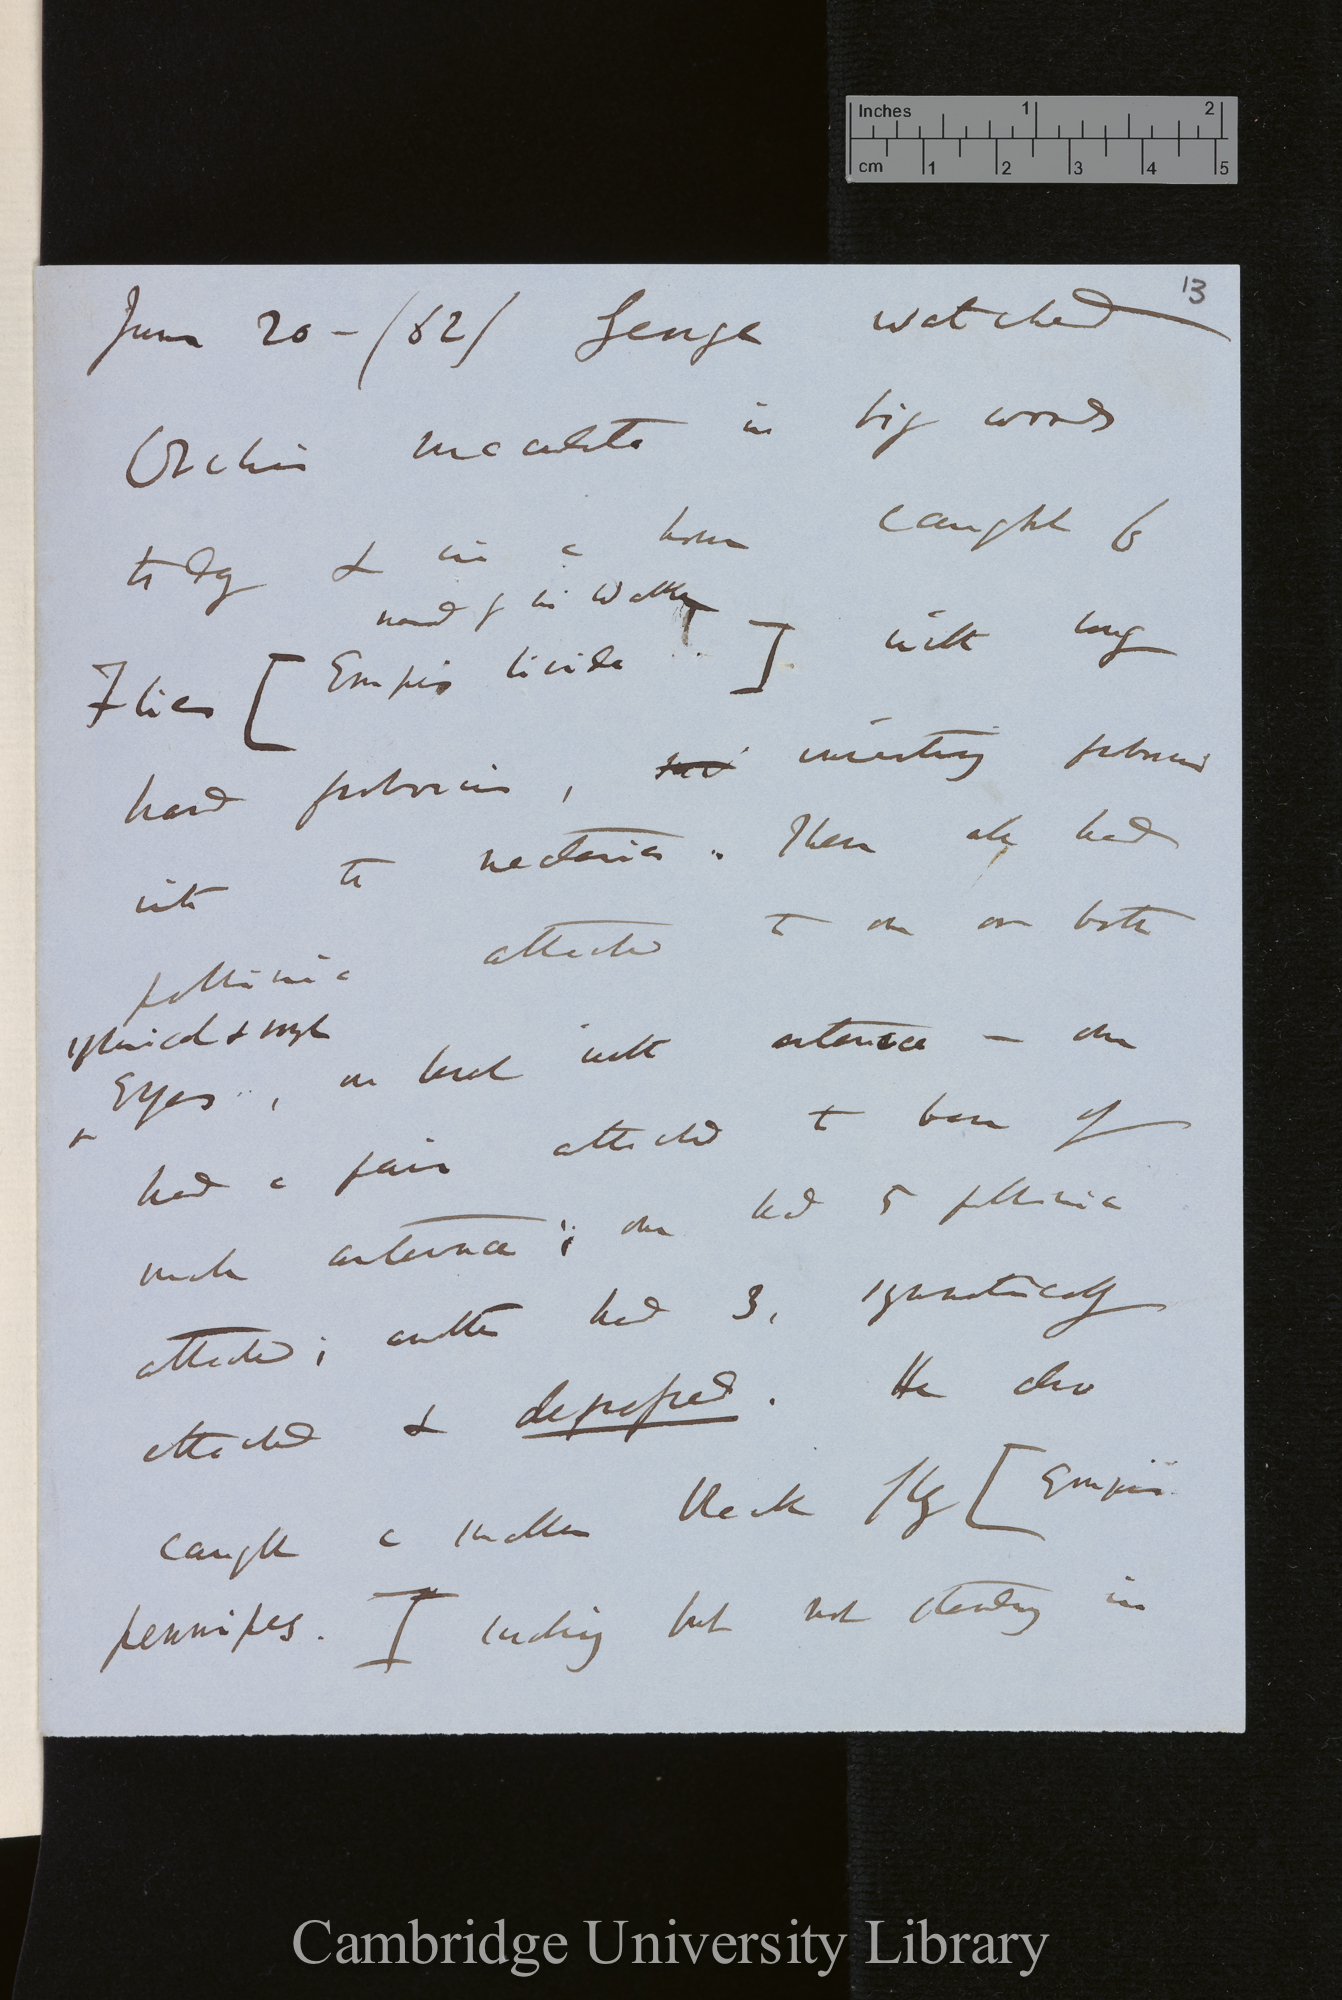 Inches 1 2
cm 1 2 3 4 5
13
June 20 - (62) George watched
Orchis maculata in big woods
to day & in a hour caught 6
named f in Walker
Flies [ Empis livida ] with long
hard proboscis, inserting proboscis
into the nectaries. These all had
pollinia attached to one or both
spherical &
Eyes, on level with antennae — one
had a pair attached to base of
under antennae; one had 5 pollinia
attached; another had 3, symmetrically
attached & depressed. He also
caught a smaller black fly [ Empis
pennipes. ] sucking but not standing in
Cambridge University Library